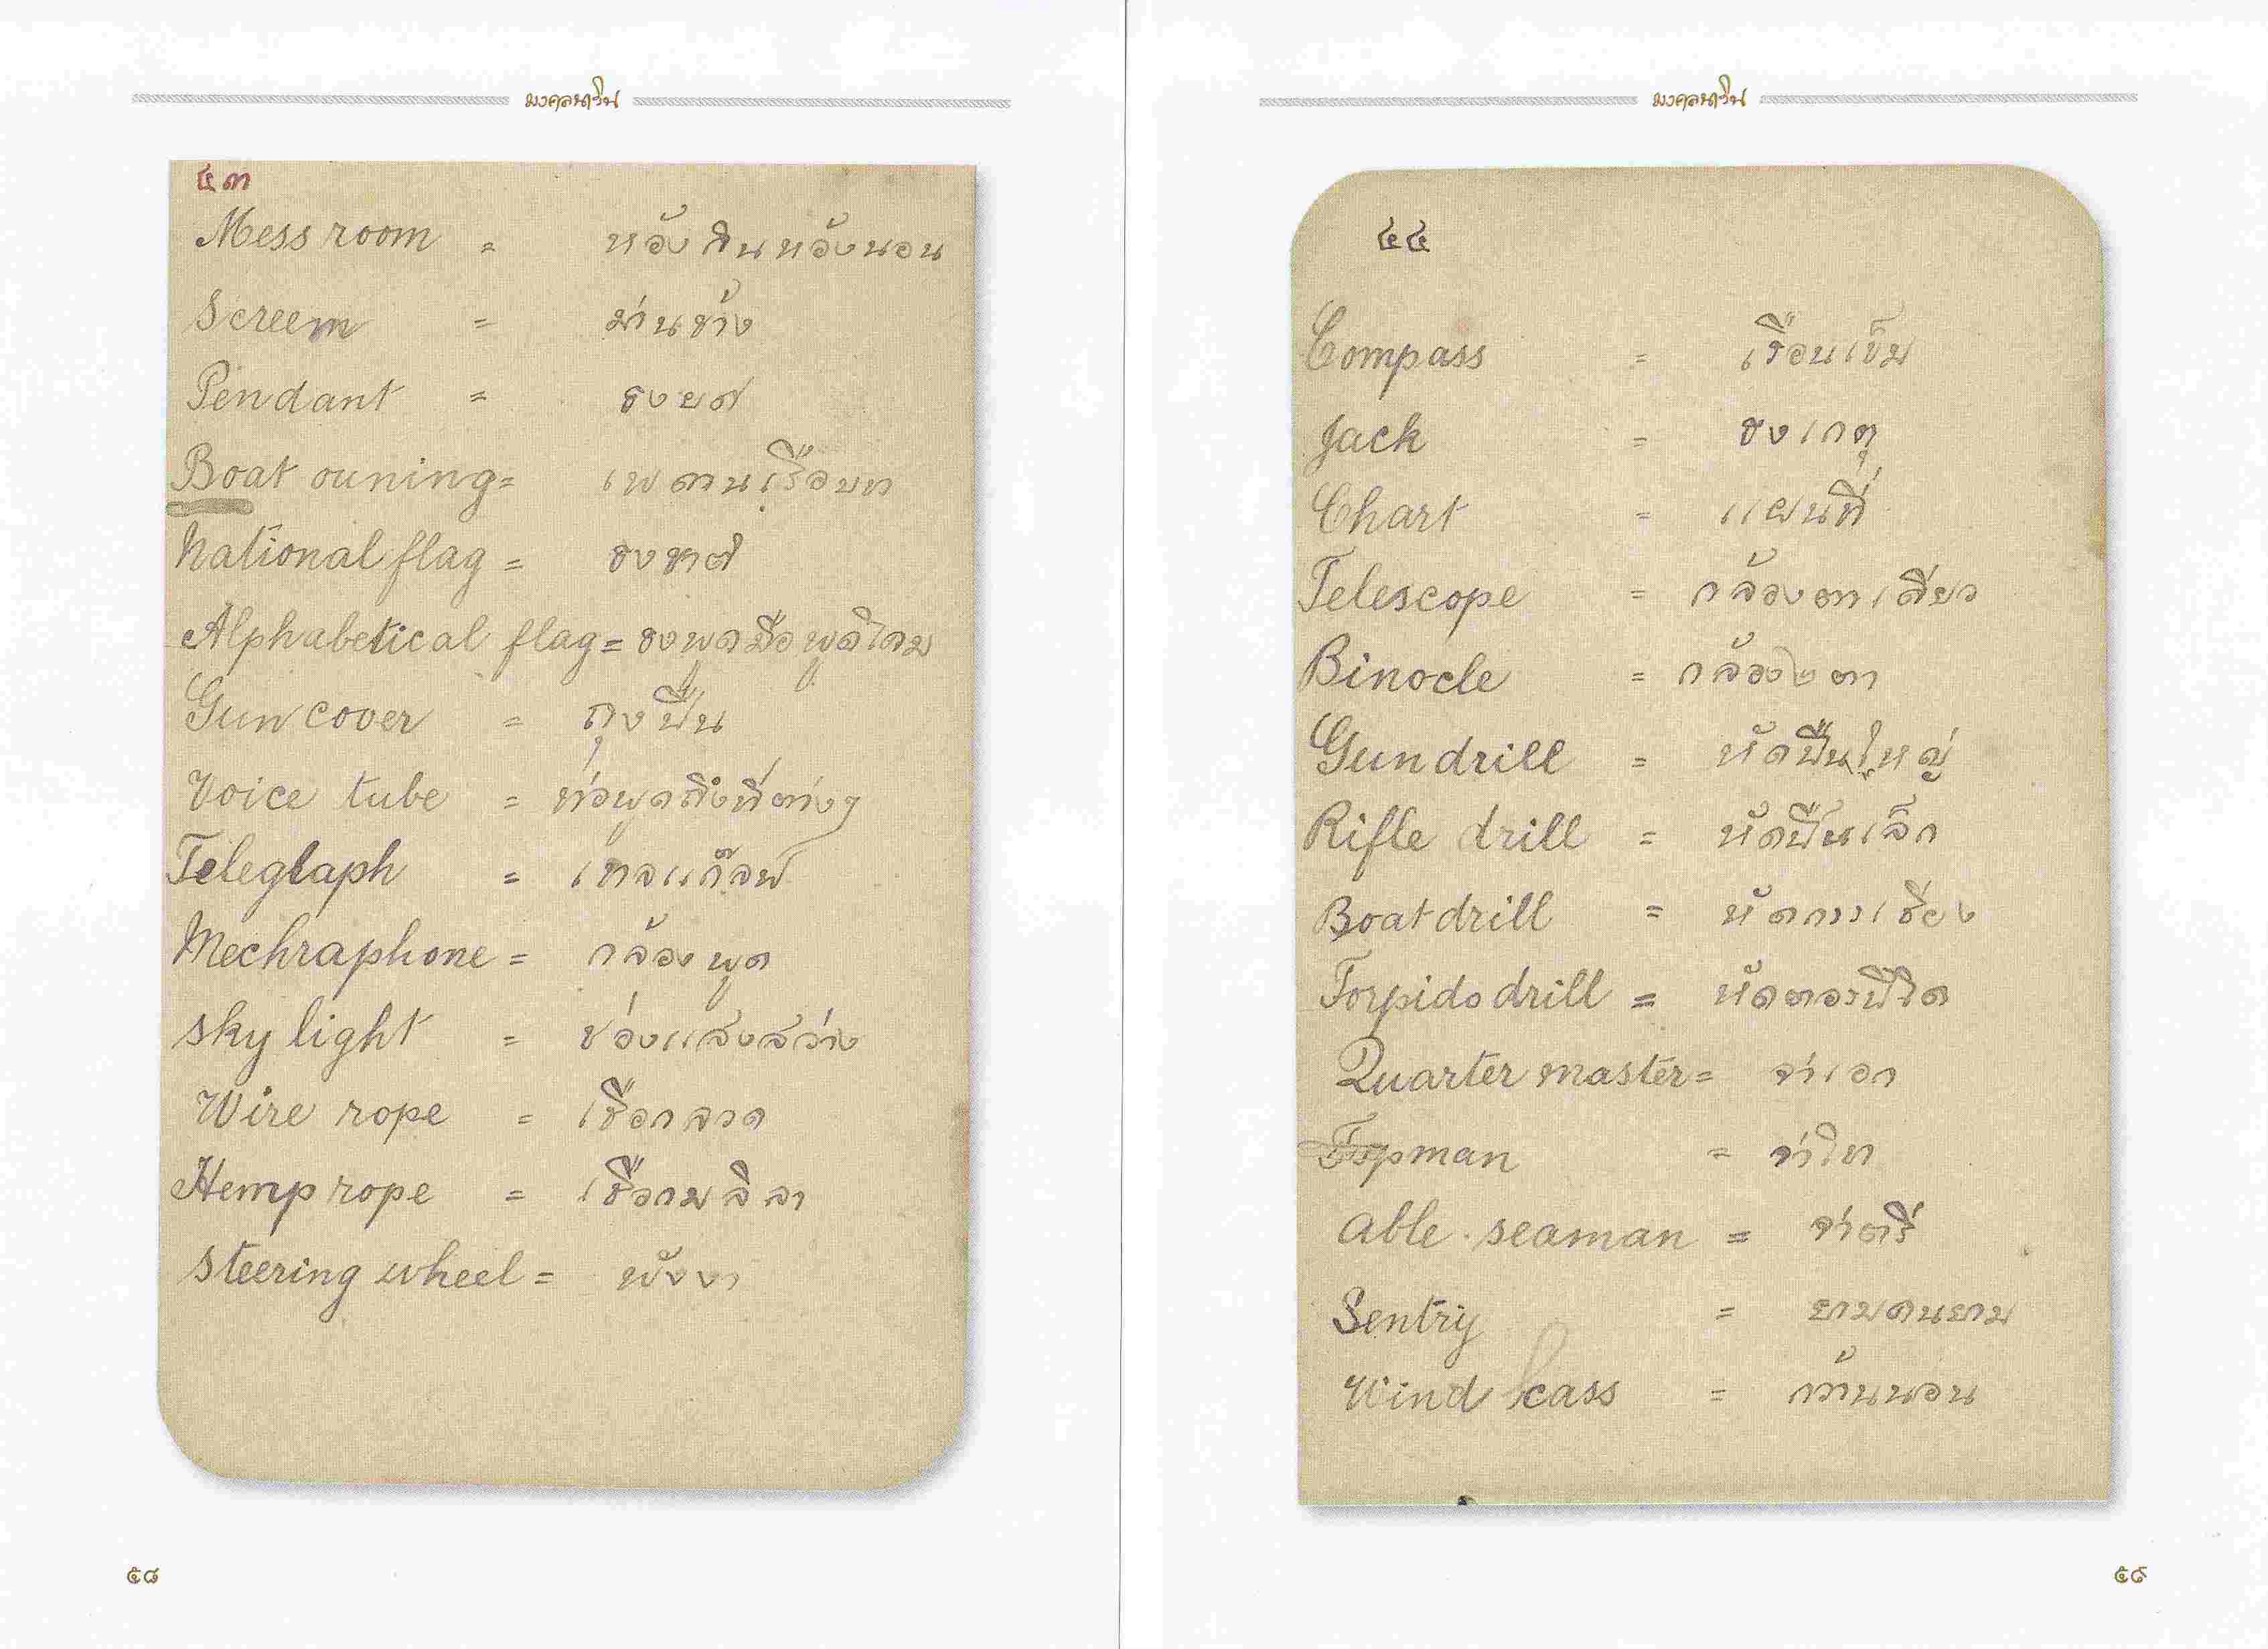 มงคลนาวิน
๔๓
Mess room = ห้องกินห้องนอน
Screem = ม่านข้าง
Pendant = ธงยศ
Boat ouning = เพดานเรือบท
National flag = ธงชาติ
Alphabetical flag = ธงพูดมือพูดโคม
Gun cover = ถุงปืน
Voice tube = ท่อพูดถึงที่ต่างๆ
Teleglaph = เทลแก๊ลฟ
Mechraphone = กล้องพูด
Sky light = ช่องแสงสว่าง
Wire rope = เชือกลวด
Hemp rope = เชือกมลิลา
Steering wheel = พังงา
๕๘
มงคลนาวิน
๔๔
Compass = เรือนเข็ม
Jack = ธงเกตุ
Chart = แผนที่
Telescope = กล้องตาเดียว
Binocle = กล้อง ๒ ตา
Gun drill = หัดปืนใหญ่
Rifle drill = หัดปืนเล็ก
Boat drill = หัดกรรเชียง
Torpido drill = หัดตอรปิโด
Quarter master = จ่าเอก
Topman = จ่าโท
able seaman = จ่าตรี
Sentry = ยามคนยาม
Wind lcass = กว้านนอน
๕๙